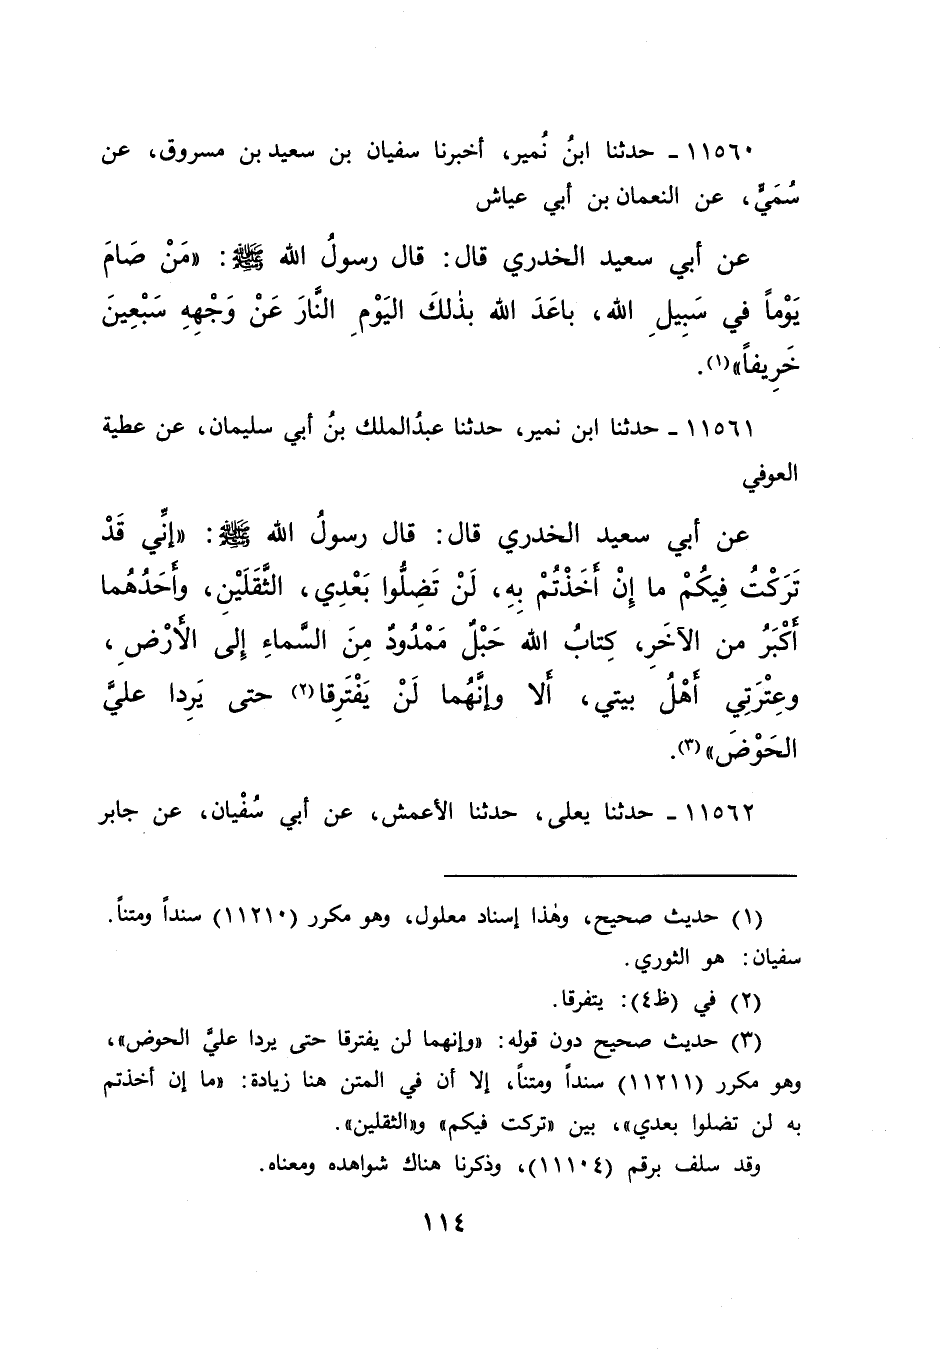 ١١٥٦٠ ـ حدثنا ابنُ نُمير، أخبرنا سفيان بن سعيد بن مسروق، عن
سُمَيٍّ، عن النعمان بن أبي عياش
عن أبي سعيد الخدري قال: قال رسولُ الله ﷺ: «مَنْ صَامَ
يَوْماً في سَبِيلِ الله، باعَدَ الله بذٰلكَ اليَوْمِ النَّارَ عَنْ وَجْهِهِ سَبْعِينَ
خَرِيفاً»(١).
١١٥٦١ ـ حدثنا ابن نمير، حدثنا عبدُالملك بنُ أبي سليمان، عن عطية
العوفي
عن أبي سعيد الخدري قال: قال رسولُ الله ﷺ: «إنِّي قَدْ
تَرَكْتُ فِيكُمْ ما إنْ أَخَذْتُمْ بِهِ، لَنْ تَضِلُّوا بَعْدِي، الثَّقَلَيْنِ، وأَحَدُهُما
أَكْبَرُ من الآخَرِ، كِتابُ الله حَبْلٌ مَمْدُودٌ مِنَ السَّماءِ إلى الأَرْضِ،
وعِتْرَتِي أَهْلُ بيتي، أَلا وإنَّهُما لَنْ يَفْتَرِقا(٢) حتى يَرِدا عليَّ
الحَوْضَ»(٣).
١١٥٦٢ ـ حدثنا يعلى، حدثنا الأعمش، عن أبي سُفْيان، عن جابر
(١) حديث صحيح، وهٰذا إسناد معلول، وهو مكرر (١١٢١٠) سنداً ومتناً.
سفيان: هو الثوري.
(٢) في (ظ٤): يتفرقا.
(٣) حديث صحيح دون قوله: «وإنهما لن يفترقا حتى يردا عليَّ الحوض»،
وهو مكرر (١١٢١١) سنداً ومتناً، إلا أن في المتن هنا زيادة: «ما إن أخذتم
به لن تضلوا بعدي»، بين «تركت فيكم» و«الثقلين».
وقد سلف برقم (١١١٠٤)، وذكرنا هناك شواهده ومعناه.
١١٤